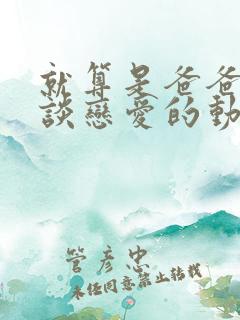 就算是爸爸
談戀愛的動
管彥忠
未任同意禁止轉載